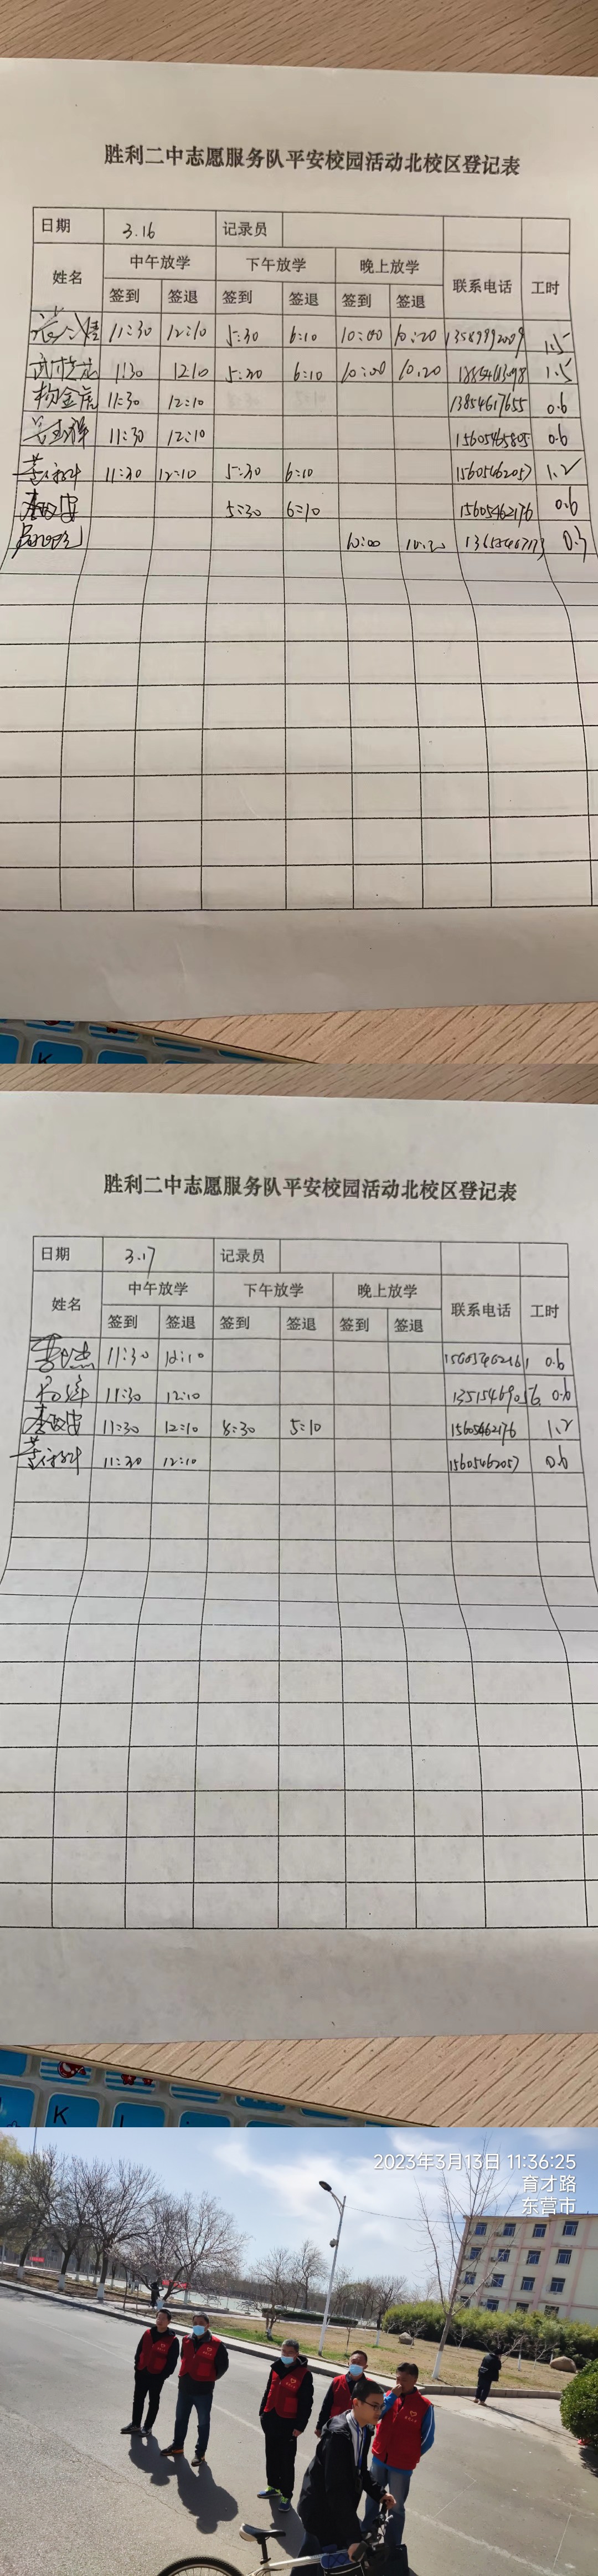 胜利二中志愿服务队平安校园活动北校区登记表
日期 3.16 记录员
姓名 中午放学 下午放学 晚上放学 联系电话 工时
签到 签退 签到 签退 签到 签退
11:30 12:10 5:30 6:10 10:00 10:20 13589992009 1.5
11:30 12:10 5:30 6:10 10:00 10:20 1.5
杨金虎 11:30 12:10 13854617655 0.6
11:30 12:10 15605465805 0.6
11:30 12:10 5:30 6:10 15605462057 1.2
5:30 6:10 15605462176 0.6
10:00 10:20 0.3
K
胜利二中志愿服务队平安校园活动北校区登记表
日期 3.17 记录员
姓名 中午放学 下午放学 晚上放学 联系电话 工时
签到 签退 签到 签退 签到 签退
11:30 12:10 15605462161 0.6
11:30 12:10 13515469056 0.6
11:30 12:10 5:10 15605462176 1.2
11:30 12:10 15605462057 0.6
K
2023年3月13日 11:36:25
育才路
东营市